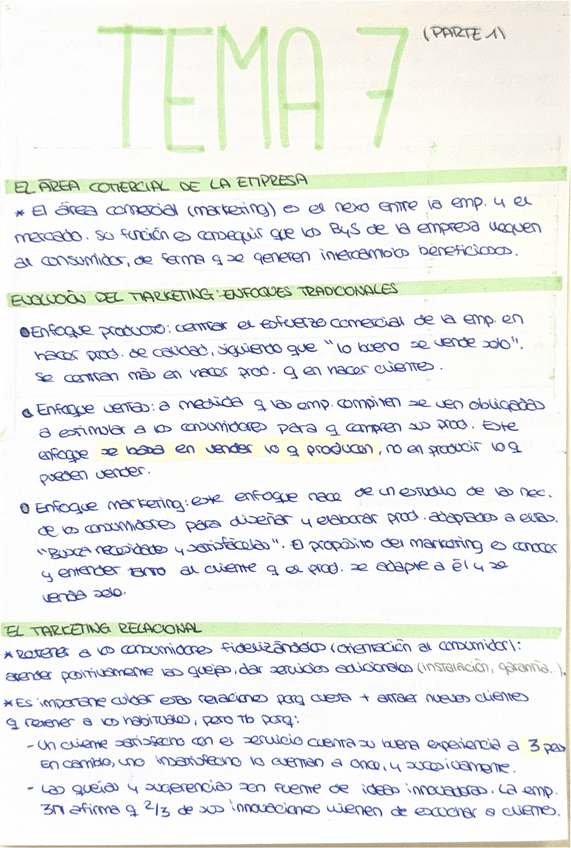 TEMA 7 (PARTE 1)
EL ÁREA COMERCIAL DE LA EMPRESA
* El área comercial (marketing) es el nexo entre la emp. y el
mercado. Su función es conseguir que los BYS de la empresa lleguen
al consumidor, de forma q se generen intercambios beneficiosos.
EVOLUCIÓN DEL MARKETING: ENFOQUES TRADICIONALES
● Enfoque producto: centrar el esfuerzo comercial de la emp. en
hacer prod. de calidad, siguiendo que "lo bueno se vende solo".
Se centran más en hacer prod. q en hacer clientes.
● Enfoque ventas: a medida q las emp. compiten se ven obligadas
a estimular a los consumidores para q compren sus prod. Este
enfoque se basa en vender lo q producen, no en producir lo q
pueden vender.
● Enfoque marketing: este enfoque nace de un estudio de las nec.
de los consumidores para diseñar y elaborar prod. adaptados a ellas.
"Busca necesidades y satisfácelas". El propósito del marketing es conocer
y entender tanto al cliente q el prod. se adapte a él y se
venda solo.
EL MARKETING RELACIONAL
* Retener a los consumidores fidelizándolos (orientación al consumidor):
atender positivamente las quejas, dar servicios adicionales (instalación, garantía...).
* Es importante cuidar estas relaciones porq cuesta + atraer nuevos clientes
q retener a los habituales, pero tb porq:
- Un cliente satisfecho con el servicio cuenta su buena experiencia a 3 pers
En cambio, uno insatisfecho lo cuentan a once, y sucesivamente.
- Las quejas y sugerencias son fuente de ideas innovadoras. La emp.
3M afirma q 2/3 de sus innovaciones vienen de escuchar a clientes.